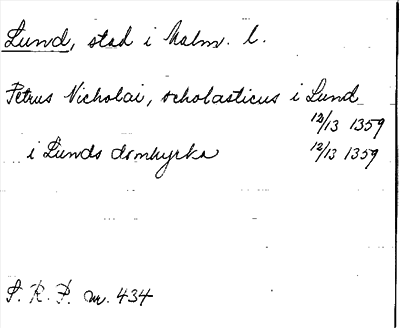 Lund, stad i Malm. l.
Petrus Nicholai, scholasticus i Lund
12/13 1359
i Lunds domkyrka 12/13 1359
S. R. P. nr. 434